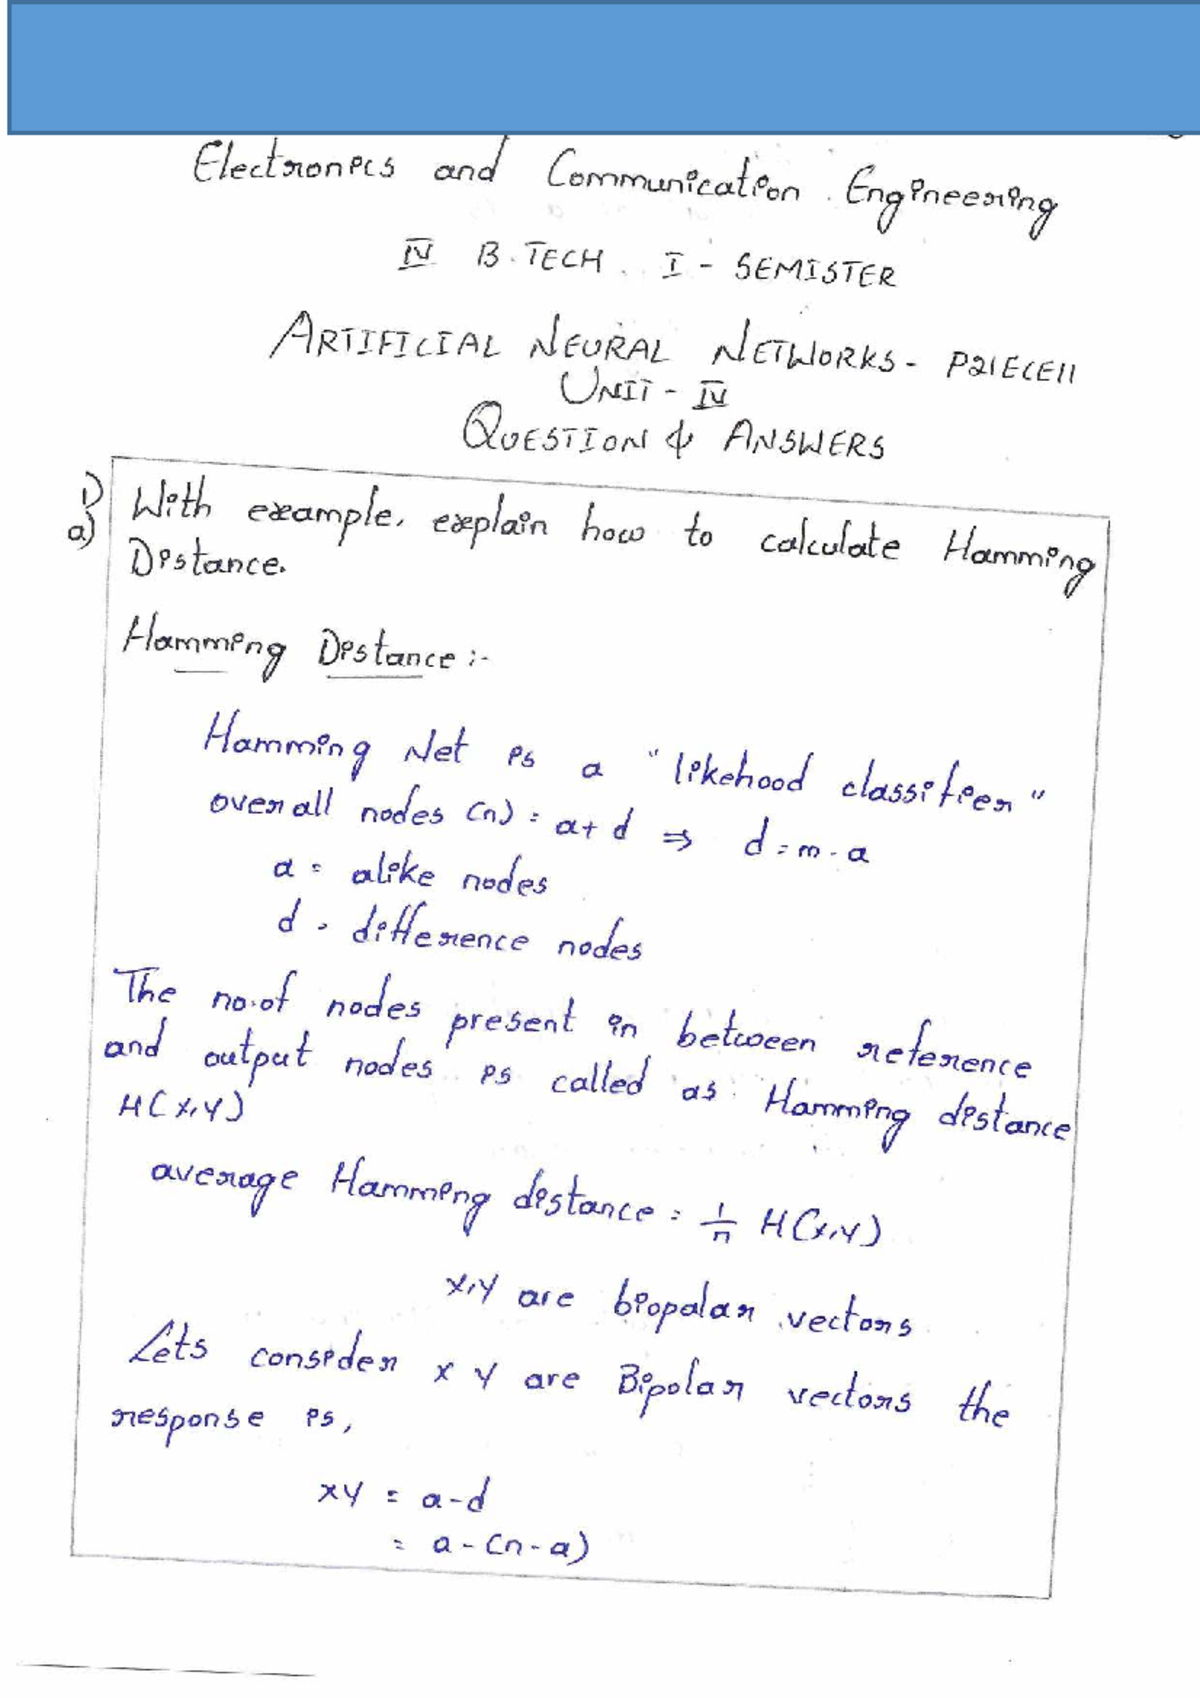 Electronics and Communication Engineering
IV B.TECH. I - SEMISTER
ARTIFICIAL NEURAL NETWORKS - P21ECE11
UNIT - IV
QUESTION & ANSWERS
1)
a) With example, explain how to calculate Hamming
Distance.
Hamming Distance :-
Hamming Net is a "likehood classifier"
over all nodes (n) = a + d ⇒ d = m - a
a = alike nodes
d = difference nodes
The no.of nodes present in between reference
and output nodes is called as Hamming distance
H(X,Y)
average Hamming distance = 1/n H(X,Y)
X,Y are biopalar vectors
Lets consider X Y are Bipolar vectors the
response is,
XY = a-d
= a-(n-a)